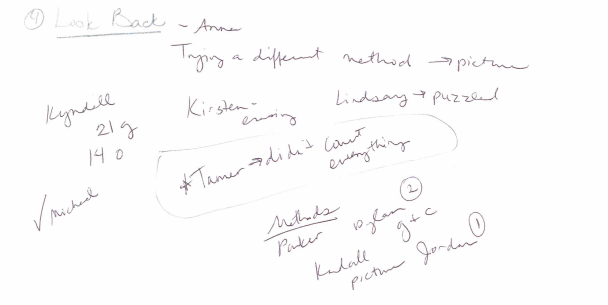 ④ Look Back - Anna
Trying a different method → picture
Kyndall
21 g
14 o
Kirsten - erasing
Lindsay → puzzled
* Tanner → didn't count everything
✓ Micheal
Methods
Parker Dylan ②
g + c
Kendall
picture Jordan ①